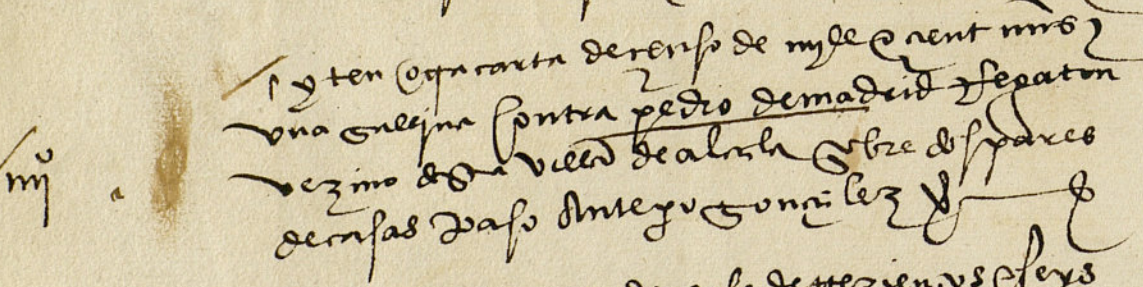 yten otra carta de censo de myll e cient mrs y
una gallina contra pedro de madrid Regaton
vezino desta villa de alcala sobre dos pares
de casas paso Ante po gonçalez
iiijº